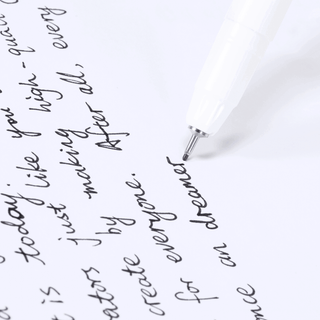 today.
ators just like you
create by making high-quali
for everyone. After all, every
nce an dreamer